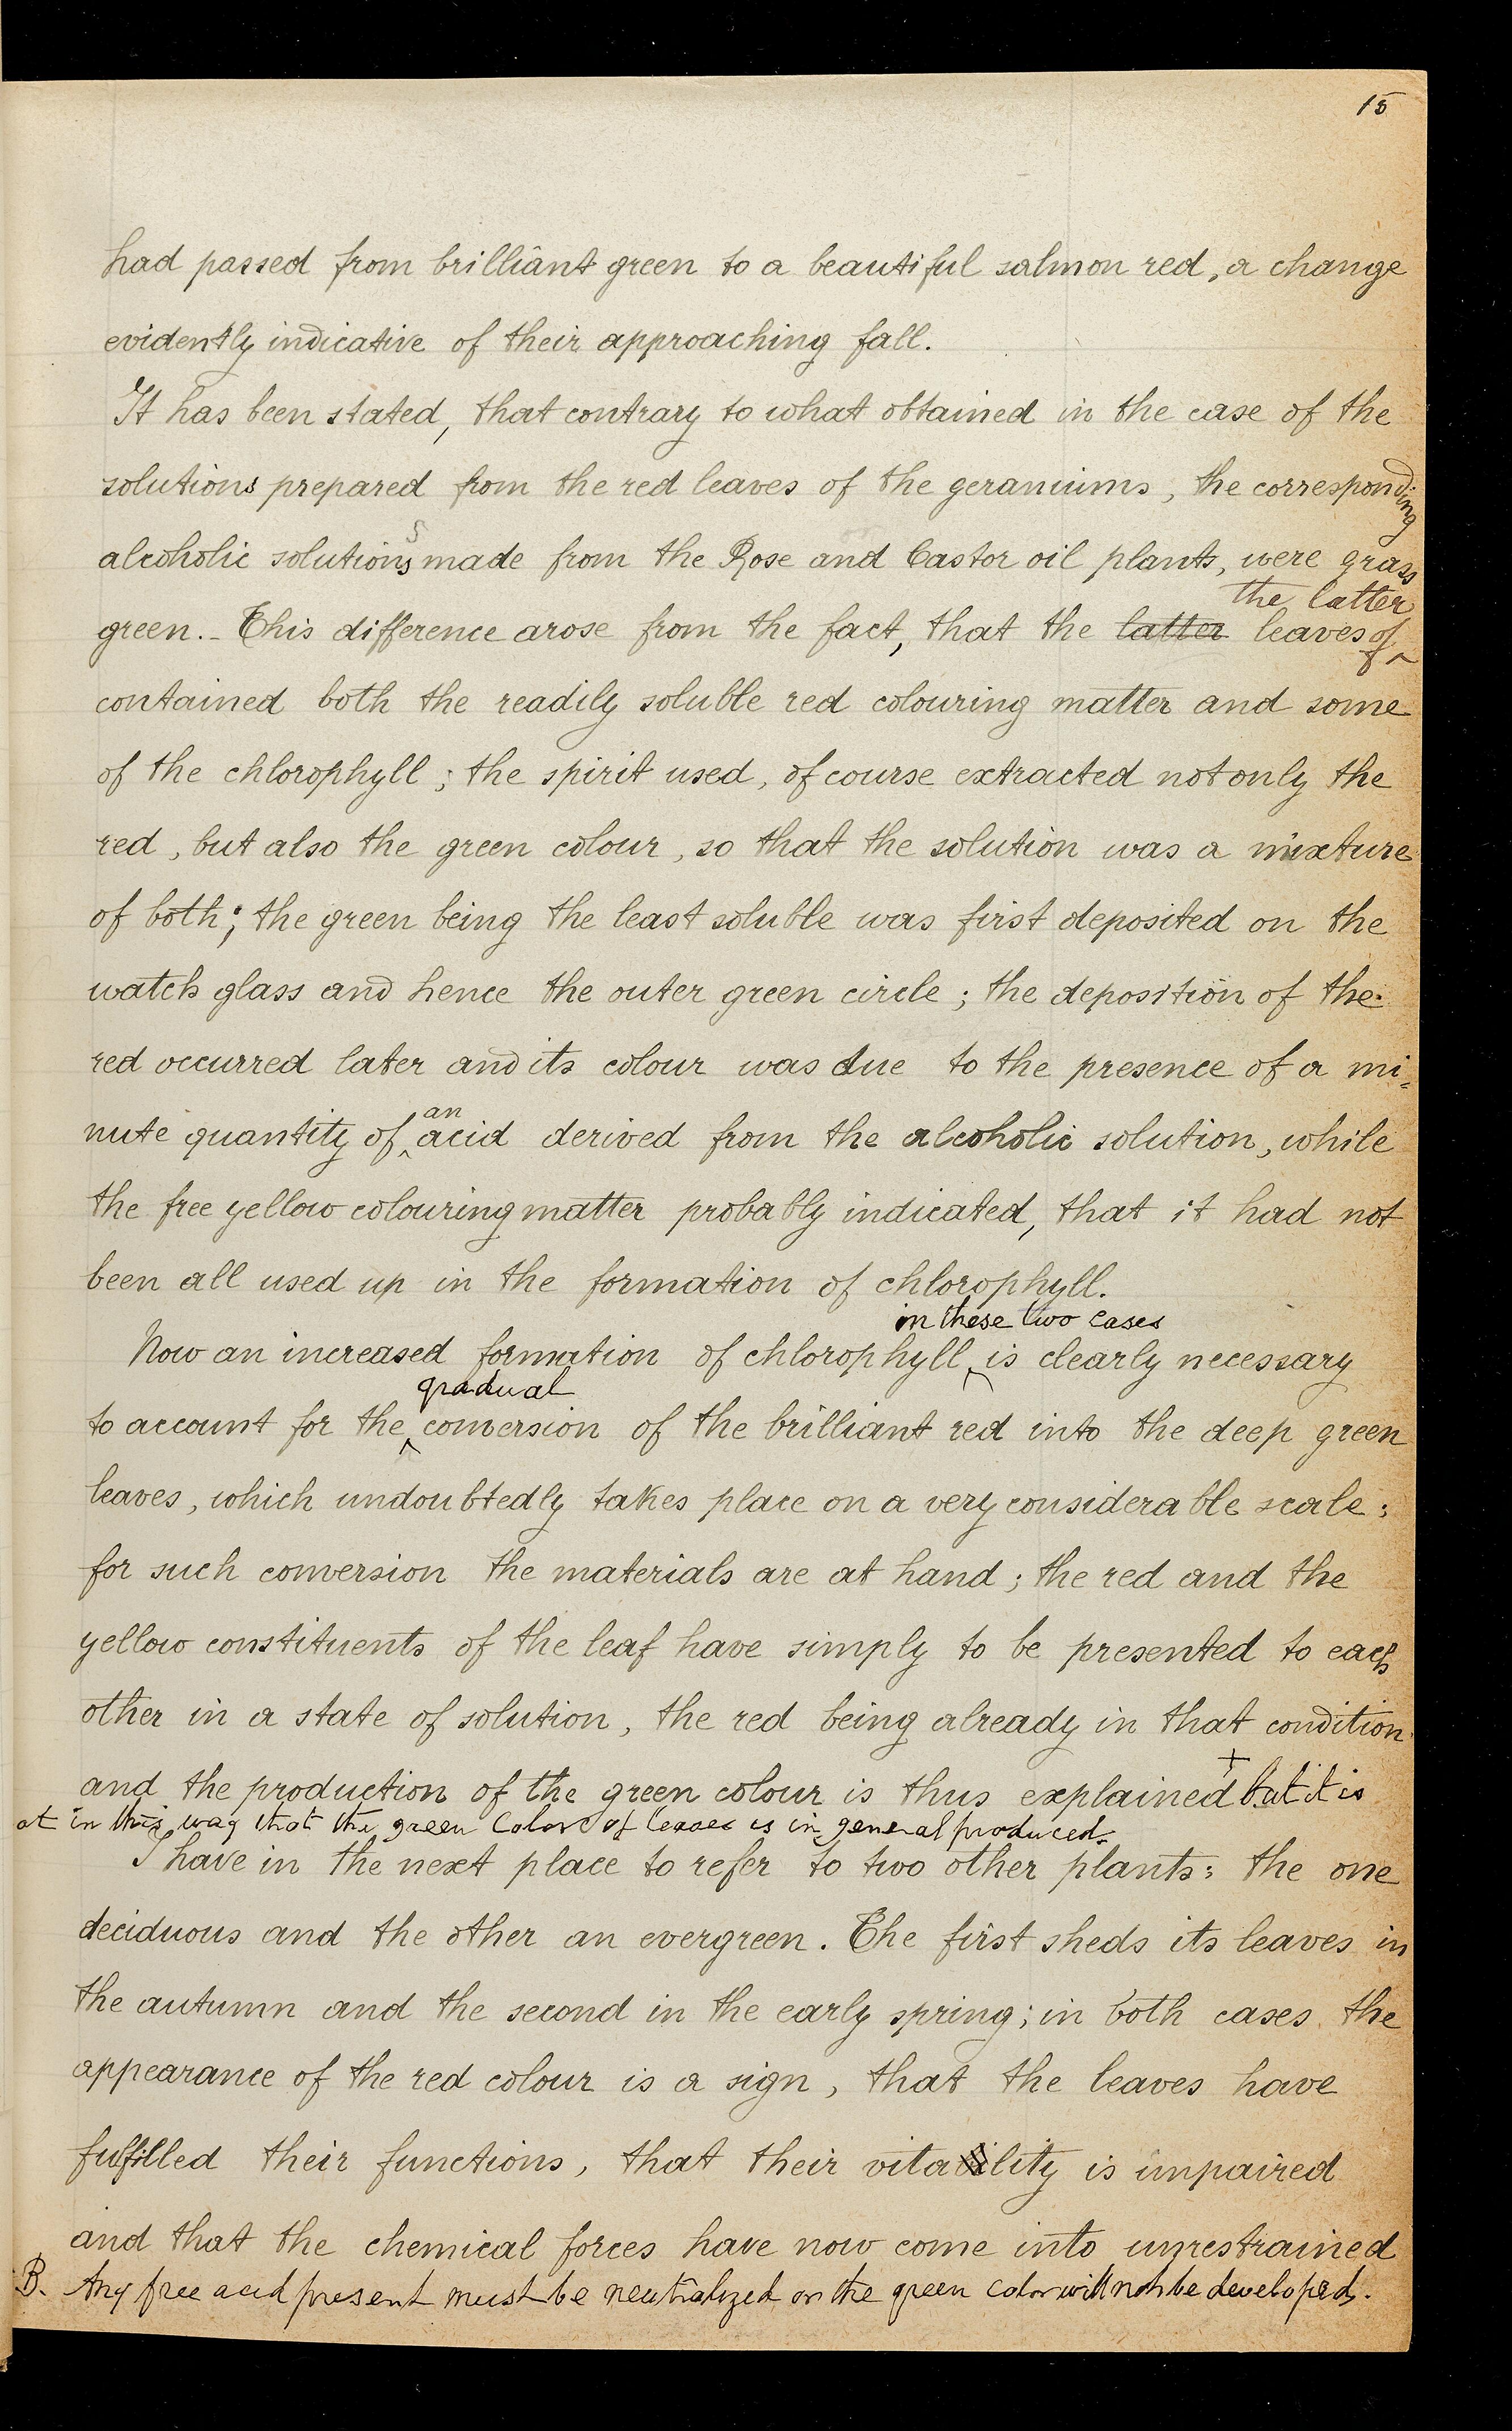 15
had passed from brilliant green to a beautiful salmon red, a change
evidently indicative of their approaching fall.
It has been stated, that contrary to what obtained in the case of the
solutions prepared from the red leaves of the geraniums, the corresponding
alcoholic solutions made from the Rose and Castor oil plants, were grass
the latter
green. - This difference arose from the fact, that the latter leaves of
contained both the readily soluble red colouring matter and some
of the chlorophyll; the spirit used, of course extracted not only the
red, but also the green colour, so that the solution was a mixture
of both; the green being the least soluble was first deposited on the
watch glass and hence the outer green circle; the deposition of the
red occurred later and its colour was due to the presence of a mi-
an
nute quantity of acid derived from the alcoholic solution, while
the free yellow colouring matter probably indicated, that it had not
been all used up in the formation of chlorophyll.
in these two cases
Now an increased formation of chlorophyll is clearly necessary
gradual
to account for the conversion of the brilliant red into the deep green
leaves, which undoubtedly takes place on a very considerable scale;
for such conversion the materials are at hand; the red and the
yellow constituents of the leaf have simply to be presented to each
other in a state of solution, the red being already in that condition
and the production of the green colour is thus explained + but it is
ot in this way that the green Color of leaves is in general produced.
I have in the next place to refer to two other plants; the one
deciduous and the other an evergreen. The first sheds its leaves in
the autumn and the second in the early spring; in both cases the
appearance of the red colour is a sign, that the leaves have
fulfilled their functions, that their vitality is impaired
and that the chemical forces have now come into unrestrained
B. Any free acid present must be neutralized or the green color will not be developed.